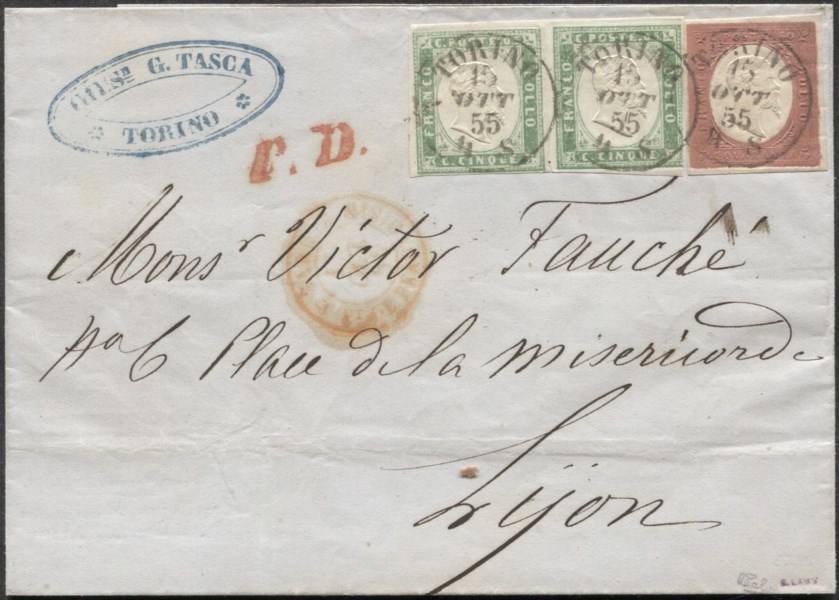 G. TASCA
TORINO
P. D.
C. POSTE
FRANCO
BOLLO
C. CINQUE
TORINO
15
OTT
55
FRANCO
BOLLO
C. CINQUE
TORINO
15
OTT
55
TORINO
15
OTT
55
Monsʳ Victor Fauché
Place de la misericorde
Lyon